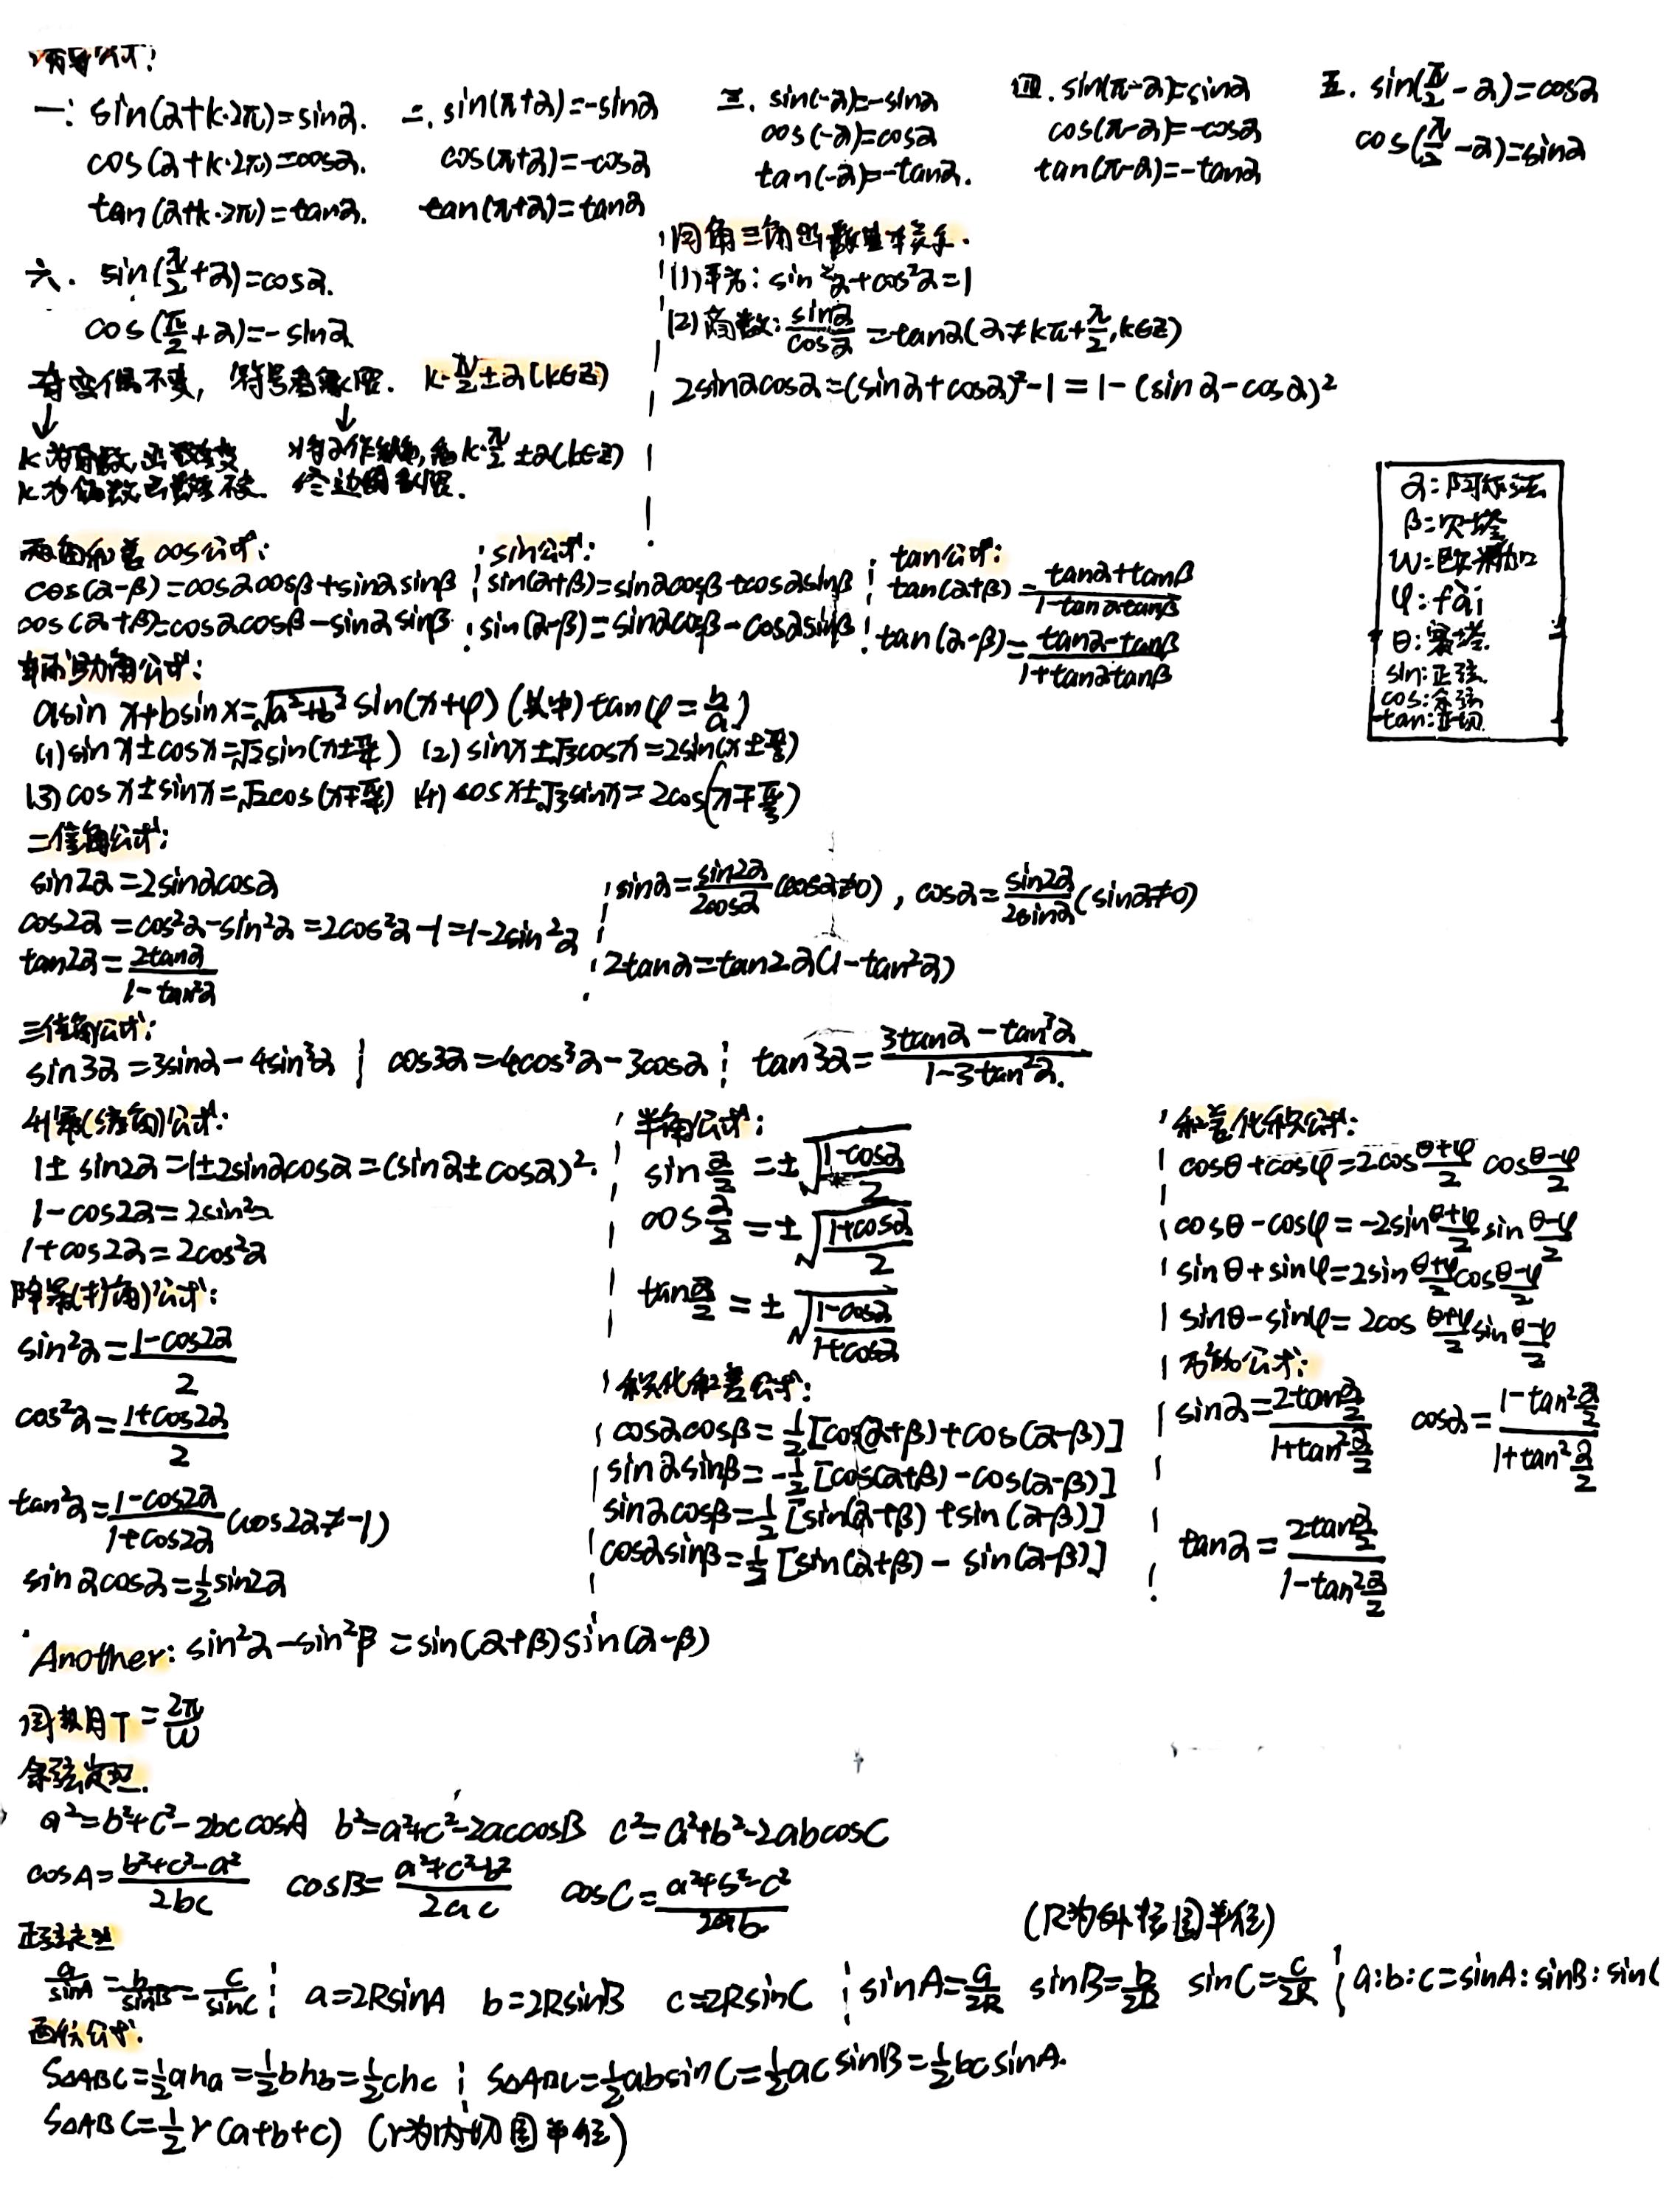 诱导公式:
一: sin(α+k·2π)=sinα.
cos(α+k·2π)=cosα.
tan(α+k·2π)=tanα.
二. sin(π+α)=-sinα
cos(π+α)=-cosα
tan(π+α)=tanα
三. sin(-α)=-sinα
cos(-α)=cosα
tan(-α)=-tanα.
四. sin(π-α)=sinα
cos(π-α)=-cosα
tan(π-α)=-tanα
五. sin(π/2-α)=cosα
cos(π/2-α)=sinα
六. sin(π/2+α)=cosα.
cos(π/2+α)=-sinα
奇变偶不变, 符号看象限. k·π/2±α(k∈Z)
↓ ↓
k为奇数, 函数改变
k为偶数函数不变.
将α作锐角, 看k·π/2±α(k∈Z)
终边象限.
同角三角函数基本关系.
(1)平方: sin²α+cos²α=1
(2)商数: sinα/cosα=tanα(α≠kπ+π/2,k∈Z)
2sinαcosα=(sinα+cosα)²-1=1-(sinα-cosα)²
α:阿尔法
β:贝塔
ω:欧米加
φ:fài
θ:赛塔.
sin:正弦.
cos:余弦
tan:正切
两角和差cos公式:
cos(α-β)=cosαcosβ+sinαsinβ
cos(α+β)=cosαcosβ-sinαsinβ
sin公式:
sin(α+β)=sinαcosβ+cosαsinβ
sin(α-β)=sinαcosβ-cosαsinβ
tan公式:
tan(α+β)=(tanα+tanβ)/(1-tanαtanβ)
tan(α-β)=(tanα-tanβ)/(1+tanαtanβ)
辅助角公式:
asin x+bsin x=√(a²+b²) sin(x+φ) (其中) tanφ=b/a)
(1)sin x±cos x=√2sin(x±π/4) (2) sin x±√3cos x=2sin(x±π/3)
(3)cos x±sin x=√2cos(x∓π/4) (4) cos x±√3sin x=2cos(x∓π/3)
二倍角公式:
sin2α=2sinαcosα
cos2α=cos²α-sin²α=2cos²α-1=1-2sin²α
tan2α=2tanα/(1-tan²α)
sinα=sin2α/2cosα(cosα≠0), cosα=sin2α/2sinα(sinα≠0)
2tanα=tan2α(1-tan²α)
三倍角公式:
sin3α=3sinα-4sin³α cos3α=4cos³α-3cosα tan3α=(3tanα-tan³α)/(1-3tan²α).
升幂(缩角)公式:
1±sin2α=1±2sinαcosα=(sinα±cosα)².
1-cos2α=2sin²α
1+cos2α=2cos²α
降幂(扩角)公式:
sin²α=(1-cos2α)/2
cos²α=(1+cos2α)/2
tan²α=(1-cos2α)/(1+cos2α)(cos2α≠-1)
sinαcosα=1/2sin2α
半角公式:
sin α/2=±√((1-cosα)/2)
cos α/2=±√((1+cosα)/2)
tan α/2=±√((1-cosα)/(1+cosα))
积化和差公式:
cosαcosβ=1/2[cos(α+β)+cos(α-β)]
sinαsinβ=-1/2[cos(α+β)-cos(α-β)]
sinαcosβ=1/2[sin(α+β)+sin(α-β)]
cosαsinβ=1/2[sin(α+β)-sin(α-β)]
和差化积公式:
cosθ+cosφ=2cos (θ+φ)/2 cos (θ-φ)/2
cosθ-cosφ=-2sin (θ+φ)/2 sin (θ-φ)/2
sinθ+sinφ=2sin (θ+φ)/2 cos (θ-φ)/2
sinθ-sinφ=2cos (θ+φ)/2 sin (θ-φ)/2
万能公式:
sinα=2tan α/2/(1+tan² α/2) cosα=(1-tan² α/2)/(1+tan² α/2)
tanα=2tan α/2/(1-tan² α/2)
Another: sin²α-sin²β=sin(α+β)sin(α-β)
周期T=2π/ω
余弦定理.
a²=b²+c²-2bccosA b²=a²+c²-2accosB c²=a²+b²-2abcosC
cosA=(b²+c²-a²)/2bc cosB=(a²+c²-b²)/2ac cosC=(a²+b²-c²)/2ab
正弦定理
(R为外接圆半径)
a/sinA=b/sinB=c/sinC a=2RsinA b=2RsinB c=2RsinC sinA=a/2R sinB=b/2R sinC=c/2R a:b:c=sinA:sinB:sinC
面积公式.
S△ABC=1/2aha=1/2bhb=1/2chc S△ABC=1/2absinC=1/2acsinB=1/2bcsinA.
S△ABC=1/2r(a+b+c) (r为内切圆半径)